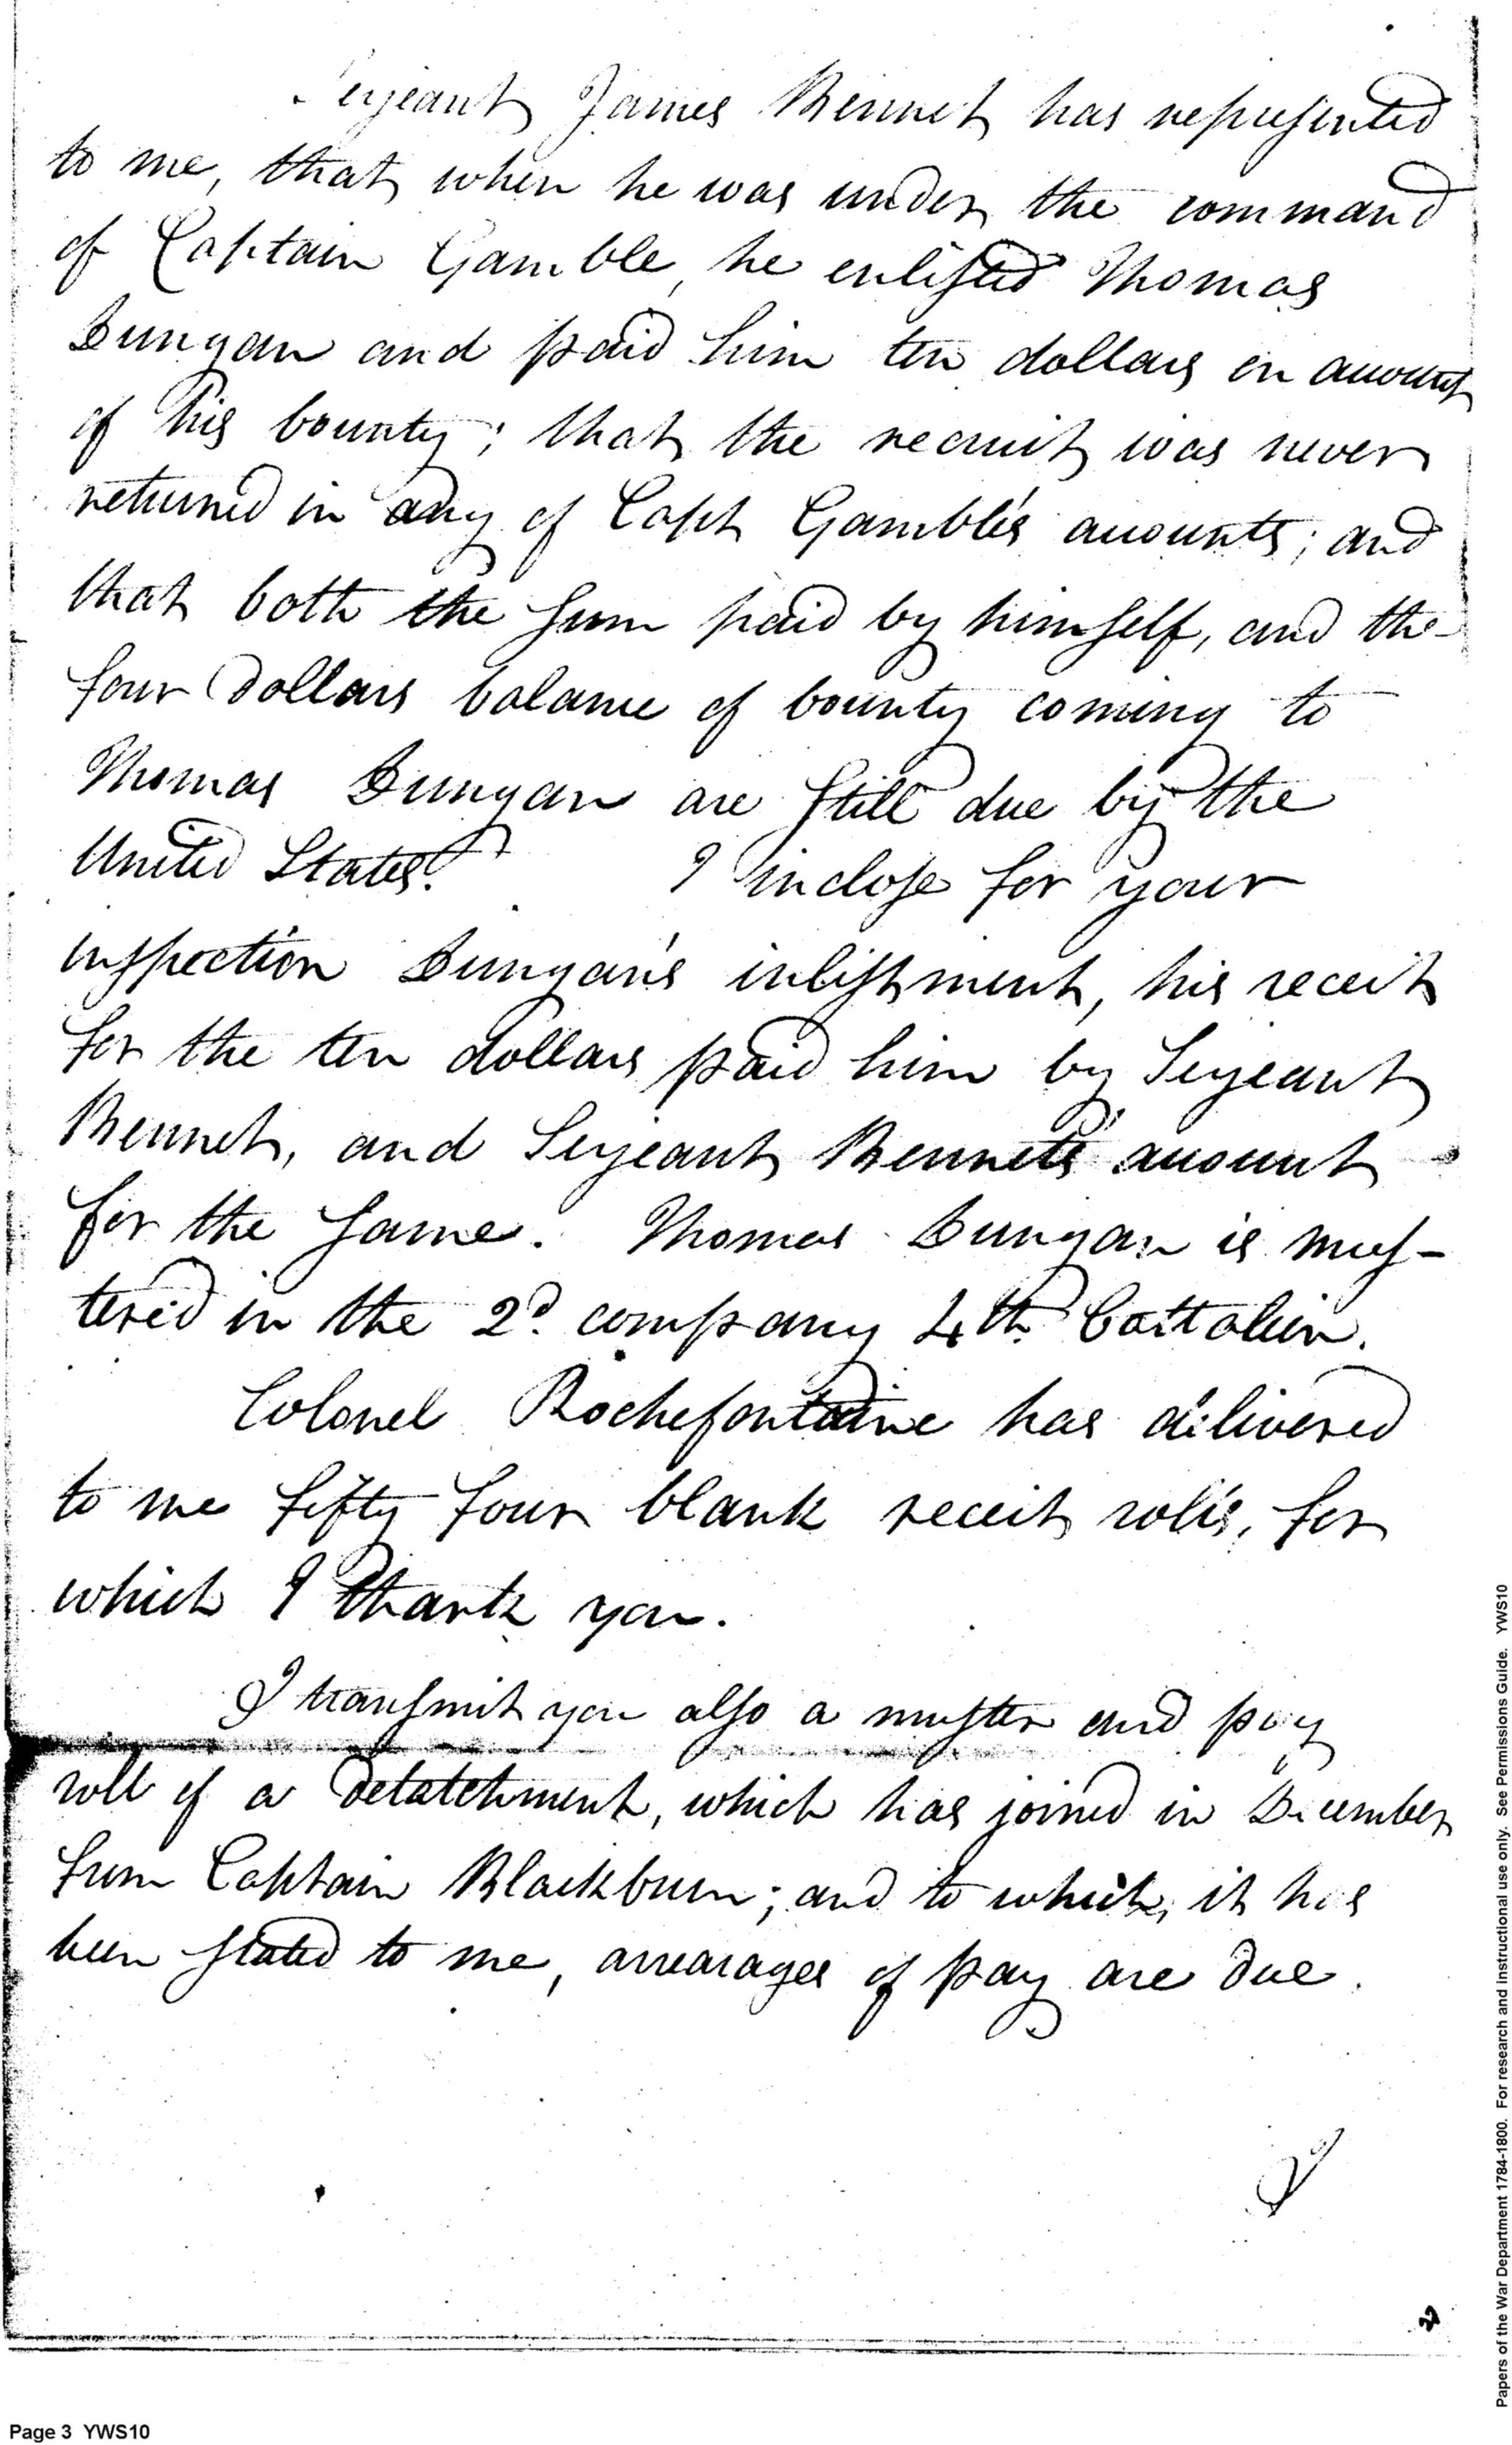 Serjeant James Bennet has represented
to me, that when he was under the command
of Captain Gamble, he enlisted Thomas
Dunyan and paid him ten dollars on account
of his bounty; that the recruit was never
returned in any of Capt Gamble's accounts; and
that both the sum paid by himself, and the
four dollars balance of bounty coming to
Thomas Dunyan are still due by the
United States. I inclose for your
inspection Dunyan's inlistment, his receit
for the ten dollars paid him by Serjeant
Bennet, and Serjeant Bennet's account
for the same. Thomas Dunyan is mus-
tered in the 2d. company 4th battalion.
Colonel Rochefontaine has delivered
to me fifty four blank receit rolls, for
which I thank you.
I transmit you also a muster and pay
roll of a detatchment, which has joined in December
from Captain Blackburn; and to which, it has
been stated to me, arrearages of pay are due.
Page 3 YWS10
Papers of the War Department 1784-1800. For research and instructional use only. See Permissions Guide. YWS10